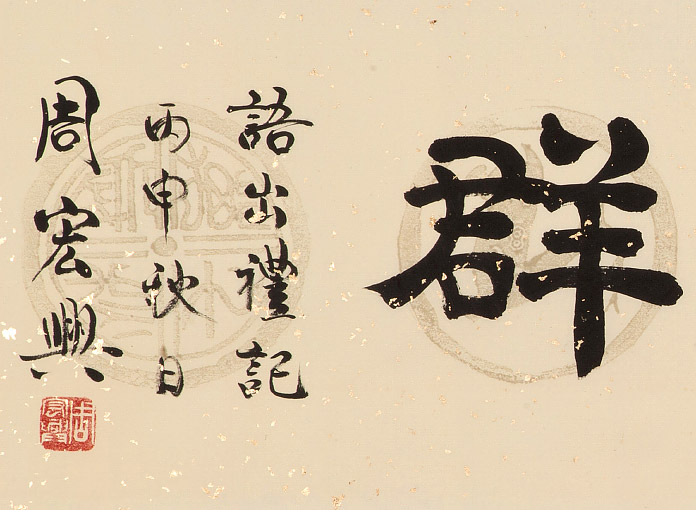 群
語出禮記
丙申秋日
周宏興